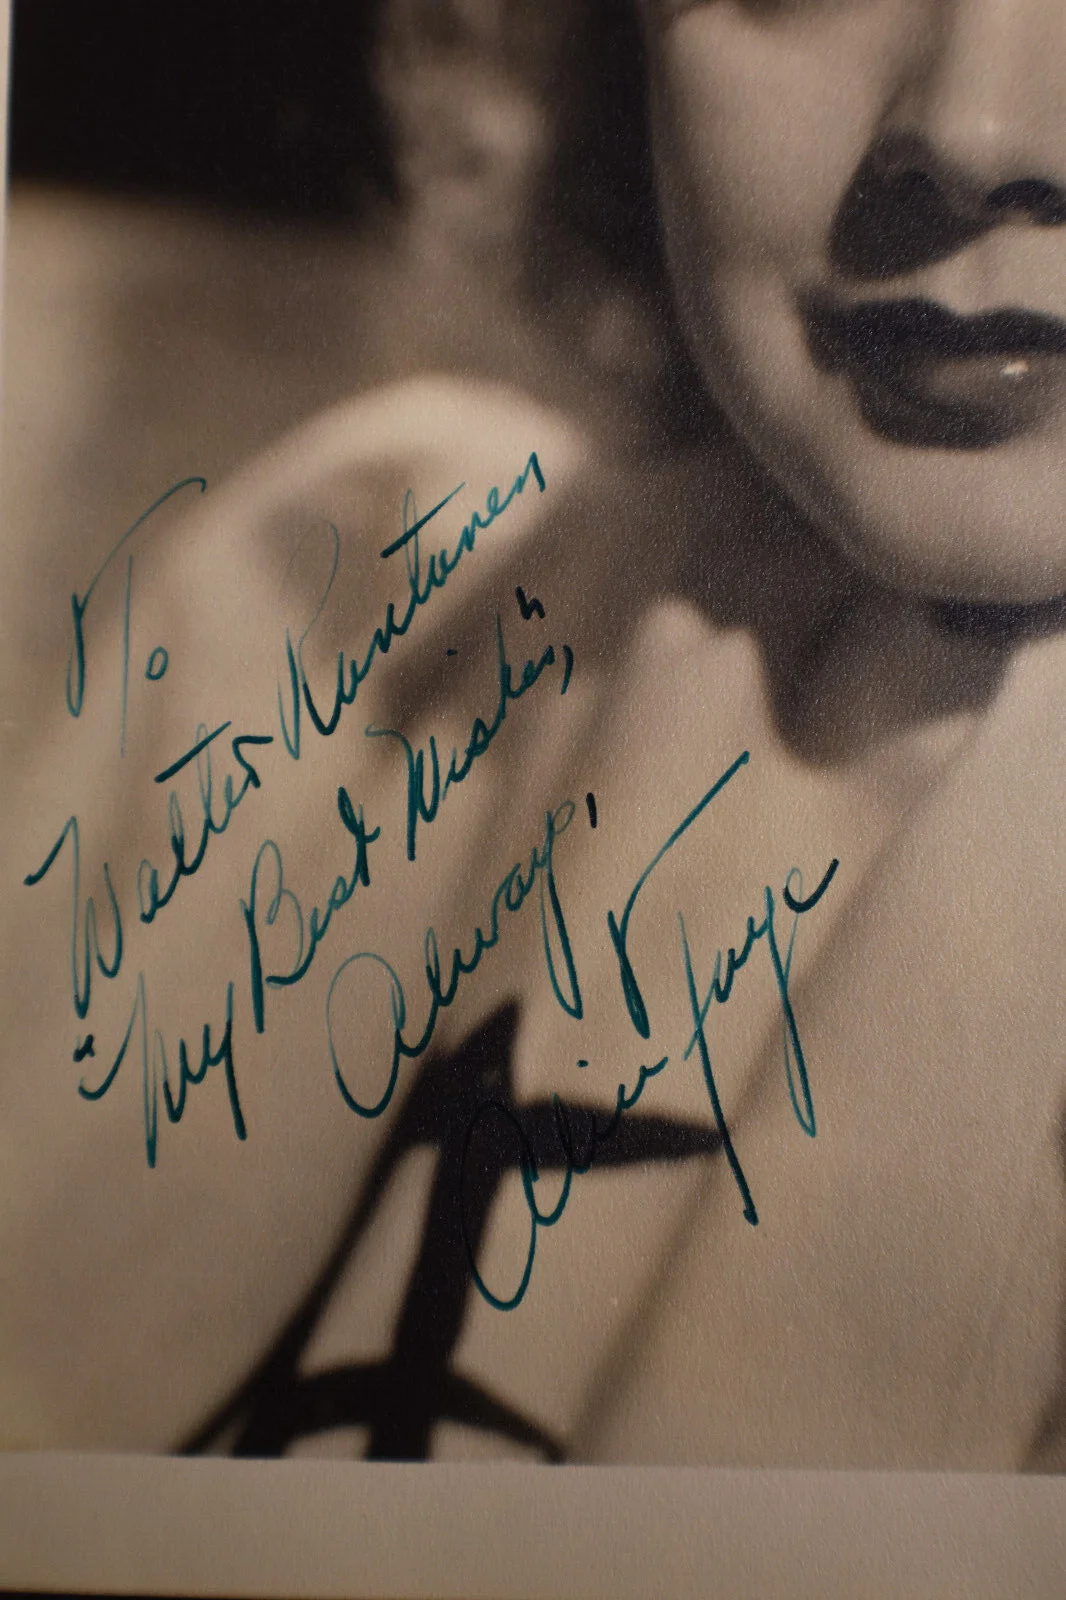 To
Walter Rantanen
"My Best Wishes,"
Always,
Alice Faye